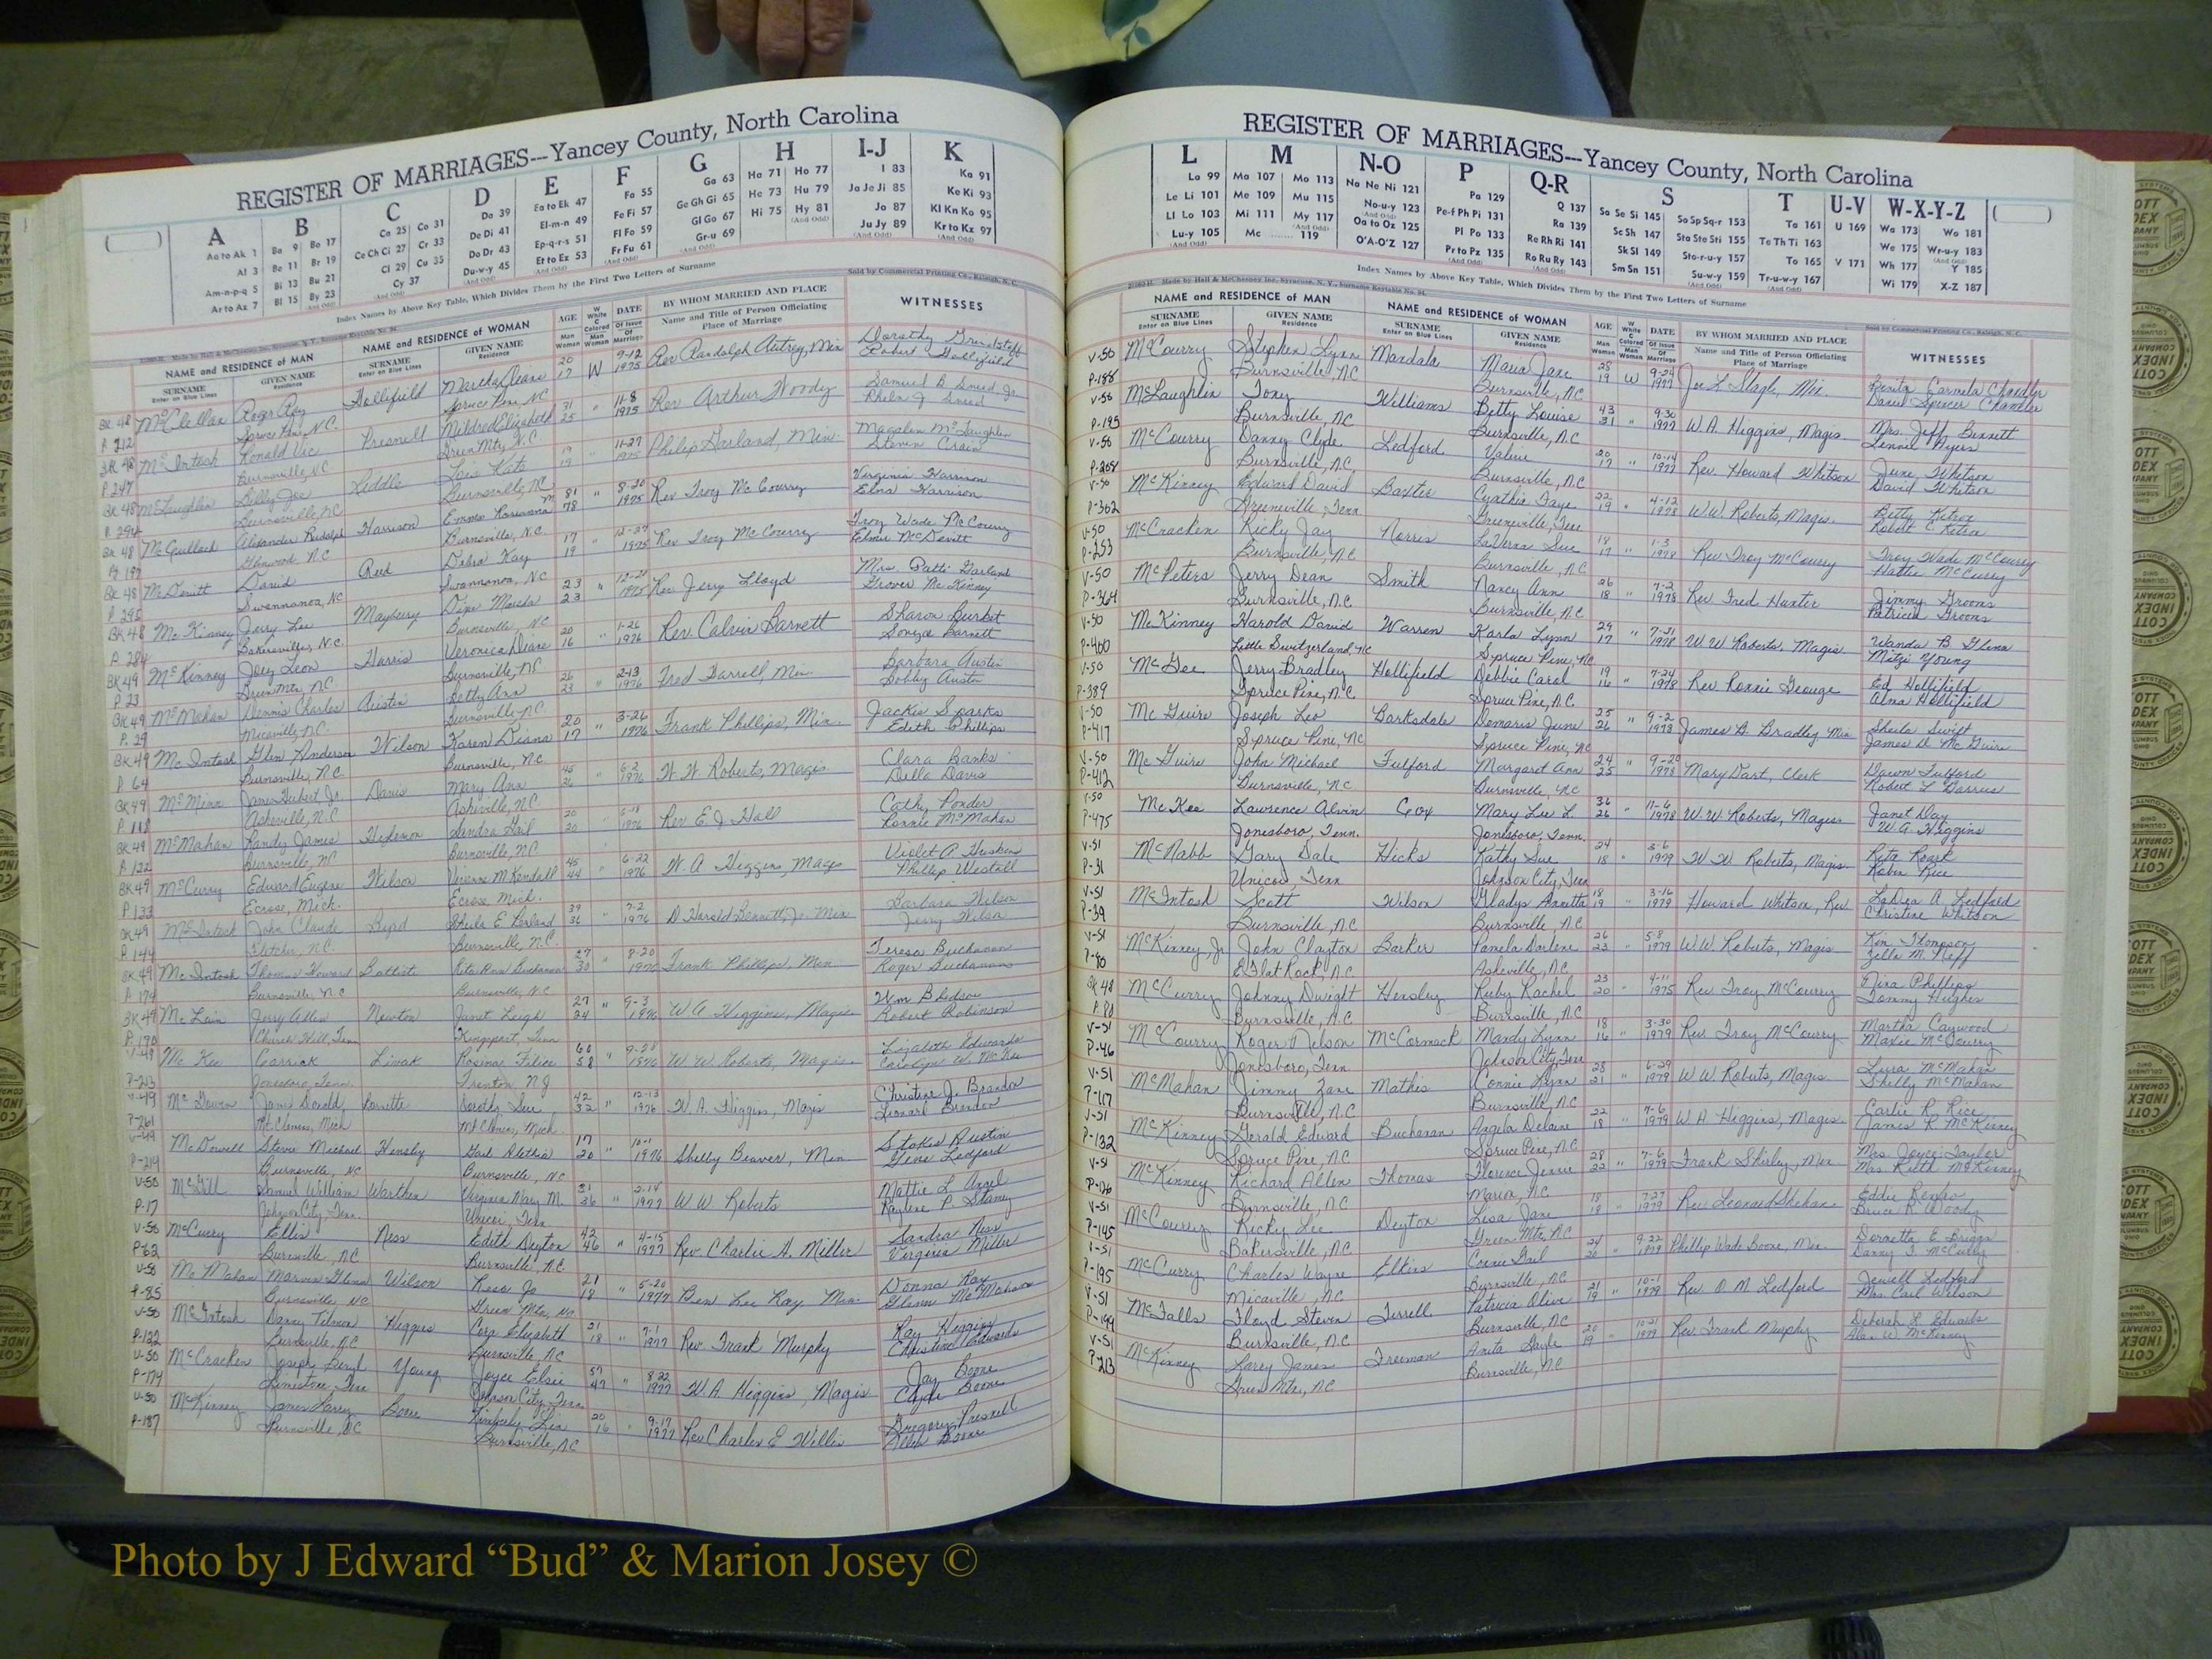 REGISTER OF MARRIAGES---Yancey County, North Carolina
A B C D E F G H I-J K
Aa to Ak 1 Ba 9 Bo 17 Ca 25 Co 31 Da 39 Ea to Ek 47 Fa 55 Ga 63 Ha 71 Ho 77 I 83 Ka 91
Al 3 Be 11 Br 19 Ce Ch Ci 27 Cr 33 De Di 41 El-m-n 49 Fe Fi 57 Ge Gh Gi 65 He 73 Hu 79 Ja Je Ji 85 Ke Ki 93
Am-n-p-q 5 Bi 13 Bu 21 Cl 29 Cu 35 Do Dr 43 Ep-q-r-s 51 Fl Fo 59 Gl Go 67 Hi 75 Hy 81 Jo 87 Kl Kn Ko 95
Ar to Az 7 Bl 15 By 23 Cy 37 Du-w-y 45 Et to Ez 53 Fr Fu 61 Gr-u 69 Ju Jy 89 Kr to Kz 97
Index Names by Above Key Table, Which Divides Them by the First Two Letters of Surname
Sold by Commercial Printing Co., Raleigh, N. C.
NAME and RESIDENCE of MAN NAME and RESIDENCE of WOMAN AGE DATE BY WHOM MARRIED AND PLACE WITNESSES
SURNAME GIVEN NAME SURNAME GIVEN NAME Name and Title of Person Officiating
Enter on Blue Lines Residence Enter on Blue Lines Residence Place of Marriage
BK 48 McClellan Roger Ray Hollifield Martha Jean 20 W 9-12 Rev Randolph Autrey, Min Dorothy Grindstaff
P. 212 Spruce Pine, N.C. Spruce Pine, NC 17 1975 Robert Hollifield
BK 48 McIntosh Ronald Vic Presnell Mildred Elizabeth 31 " 11-8 Rev Arthur Woody Samuel B Sneed Jr.
P. 247 Burnsville, NC Green Mtn, N.C. 25 1975
BK 48 McLaughlin Billy Joe Riddle Lois Kate 19 " 11-27 Philip Harland, Min. Magalene McLaughlin
Burnsville, NC Burnsville, NC 1975 Steven Crain
BK 48 McCulloch Alexander Rudolph Harrison Emma Roseanna M. 81 " 8-20 Rev Troy McCourry Virginia Harrison
Glenwood N.C. Burnsville, N.C. 78 1975 Edna Harrison
BK 48 McDevitt David Reed Debra Kay 17 " 12-27 Rev Troy McCourry Troy Wade McCourry
P. 295 Swannanoa, NC Swannanoa, NC 19 1975 Elmer McDevitt
BK 48 McKinney Jerry Lee Mayberry 23 " Rev. Jerry Lloyd Mrs. Patti Garland
P. 284 Bakersville, N.C. Burnsville, NC 23 1975 Grover McKinney
BK 49 McKinney Joey Leon Harris Veronica Diane 20 " 1-26 Rev. Calvin Barnett Sharon Burket
P. 23 Green Mtn, NC Burnsville, NC 16 1976 Sonya Barnett
BK 49 McMahan Dennis Charles Austin Betty Ann 26 " 2-13 Fred Harrell, Min. Barbara Austin
P. 29 Micaville, N.C. Burnsville, N.C. 23 1976 Bobby Austin
BK 49 McIntosh Glen Anderson Wilson Karen Diana 20 " 3-26 Frank Phillips, Min. Jackie Sparks
P. 64 Burnsville, N.C. Burnsville, N.C. 17 1976 Edith Phillips
BK 49 McMinn James Hubert Jr Davis Mary Ann 45 " 6-2 W. W. Roberts, Magis. Clara Banks
P. 118 Asheville, N.C. Asheville, N.C. 1976 Della Davis
BK 49 McMahan Randy James Hickerson Sandra Gail 20 Rev E. J Hall Cathy Ponder
P. 122 Burnsville, NC Burnsville, N.C. 20 1976 Ronnie McMahan
BK 49 McCurry Edward Eugene Wilson M Kendall 45 " 6-22 W. A. Higgins, Magis Violet P Huskins
P. 133 Ecorse, Mich. Ecorse, Mich. 44 1976 Phillip Westall
BK 49 McIntosh John Claude Byrd Sheila E 39 7-2 D Harold Bennett, Jr. Min Barbara Wilson
P. 144 Fletcher, N.C. Burnsville, N.C. 36 1976 Jerry Wilson
BK 49 McIntosh Thomas Howard Rita Rose Buchanan 27 " 8-20 Frank Phillips, Min Teresa Buchanan
P. 174 Burnsville, N.C. Burnsville, N.C. 30 1976 Roger Buchanan
BK 49 McLain Jerry Allen Newton Janet Leigh 27 " 9-3 W. A. Higgins, Magis Wm Bledsoe
P. 170 Church Hill, Tenn Kingsport, Tenn 24 1976 Robert Robinson
V-49 McKee Carrick Rosina Felice 60 " W. W. Roberts, Magis. Elizabeth Edwards
P-213 Jonesboro, Tenn. Trenton N J 58 1976 Carolyn W. McKee
V-49 James Donald Dorothy Sue 42 " 12-13 W. A. Higgins, Magis Christine J. Brandon
P-261 Mt Clemens, Mich Mt Clemens, Mich. 32 1976 Leonard Brandon
V-49 McDowell Stevie Michael Hensley Gail Alethia 17 " 10-1 Shelby Beaver, Min Stokes Austin
P-214 Burnsville, NC Burnsville, NC 20 1976 Gene Ledford
V-50 McGill Samuel William Warthen Virginia Mary M. 31 " 2-14 W. W. Roberts Mattie L Angel
P-17 Johnson City, Tenn. Unicoi, Tenn 36 1977 Raylene P. Stamey
V-50 McCurry Ellis Ness Edith Deyton 42 " 4-15 Rev. Charlie A. Miller Sandra Ness
P-62 Burnsville, NC Burnsville, N.C. 46 1977 Virginia Miller
V-50 McMahan Marvin Glenn Wilson Jo 21 " 5-20 Ben Lee Ray Min. Donna Ray
P-85 Burnsville, NC Green Mtn, NC 18 1977 Glenn McMahan
V-50 McIntosh Danny Tilman Higgins Elizabeth 21 " 7-1 Rev. Frank Murphy Ray Higgins
P-122 Burnsville, NC Burnsville NC 18 1977 Christine Edwards
V-50 McCracken Joseph Young Joyce Elsie 57 " 8-22 W. A. Higgins, Magis Jay Boone
P-174 Limestone, Tenn Johnson City, Tenn. 47 1977 Clyde Boone
V-50 McKinney James Larry Boone Kimberly 20 " 9-17 Rev Charles E Willis Gregory Presnell
P-187 Burnsville, NC Burnsville, NC 16 1977 Boone
REGISTER OF MARRIAGES---Yancey County, North Carolina
L M N-O P Q-R S T U-V W-X-Y-Z
La 99 Ma 107 Mo 113 Na Ne Ni 121 Pa 129 Q 137 Sa Se Si 145 So Sp Sq-r 153 Ta 161 U 169 Wa 173 Wo 181
Le Li 101 Me 109 Mu 115 No-u-y 123 Pe-f Ph Pi 131 Ra 139 Sc Sh 147 Sta Ste Sti 155 Te Th Ti 163 We 175 Wr-u-y 183
Ll Lo 103 Mi 111 My 117 Oa to Oz 125 Pl Po 133 Re Rh Ri 141 Sk Sl 149 Sto-r-u-y 157 To 165 V 171 Wh 177 Y 185
Lu-y 105 Mc 119 O'A-O'Z 127 Pr to Pz 135 Ro Ru Ry 143 Sm Sn 151 Su-w-y 159 Tr-u-w-y 167 Wi 179 X-Z 187
Index Names by Above Key Table, Which Divides Them by the First Two Letters of Surname
Made by Hall & McChesney Inc., Syracuse, N. Y.
NAME and RESIDENCE of MAN NAME and RESIDENCE of WOMAN AGE DATE BY WHOM MARRIED AND PLACE WITNESSES
SURNAME GIVEN NAME SURNAME GIVEN NAME Name and Title of Person Officiating
Enter on Blue Lines Residence Enter on Blue Lines Residence Place of Marriage
V-50 McCourry Stephen Lynn Maria Jane 28 W 9-24 Joe L Slagle, Min. Benita Carmela Chandler
P-188 Burnsville, NC Burnsville, NC 19 1977 David Spencer Chandler
V-50 McLaughlin Tony Williams Betty Louise 43 " 9-30 W. A. Higgins, Magis. Mrs. Jeff Bennett
P-195 Burnsville, NC Burnsville, N.C. 31 1977 Lennie Myers
V-50 McCourry Danny Clyde Ledford Valerie 20 " 10-14 Rev. Howard Whitson June Whitson
P-208 Burnsville, N.C. Burnsville, N.C. 17 1977 David Whitson
V-50 McKinney Edward David Baxter Cynthia Faye 22 " 4-12 W. W. Roberts, Magis. Betty
P-302 Greeneville, Tenn Greeneville, Tenn 19 1978 Robert C
V-50 McCracken Ricky Jay Norris LaVerna Sue 18 " 1-3 Rev Troy McCourry Troy Wade McCourry
P-253 Burnsville, NC Burnsville, NC 17 1978 Hattie McCurry
V-50 McPeters Jerry Dean Smith Nancy Ann 26 " 7-2 Rev Fred Hunter Jimmy Grooms
P-364 Burnsville, N.C. Burnsville, NC 18 1978 Patricia Grooms
V-50 McKinney Harold David Warren Karla Lynn 29 " 7-21 W. W. Roberts, Magis Wanda B Glenn
P-400 Little Switzerland, NC Spruce Pine, NC 17 1978 Mitzi Young
V-50 McGee Jerry Bradley Hollifield Debbie Carol 19 " 7-24 Rev. Ronnie George Ed Hollifield
P-389 Spruce Pine, N.C. Spruce Pine, N.C. 16 1978 Alna Hollifield
V-50 McGuire Joseph Leo Barksdale Damaris June 25 " 9-2 James H. Bradley Min Sheila Swift
P-417 Spruce Pine, NC Spruce Pine, NC 26 1978 James D. McGuire
V-50 McGuire John Michael Fulford Margaret Ann 24 " 9-20 Mary Dart, Clerk Dawn Fulford
P-412 Burnsville, NC Burnsville, NC 25 1978 Robert L
V-50 McKee Lawrence Alvin Cox Mary Lee L. 36 " 11-6 W. W. Roberts, Magis. Janet Day
P-475 Jonesboro, Tenn. Jonesboro, Tenn. 26 1978 W. A. Higgins
V-51 McNabb Gary Dale Hicks Kathy Sue 24 " 3-6 W. W. Roberts, Magis. Rita Roark
P-31 Unicoi Tenn Johnson City, Tenn 18 1979 Robin Rice
V-51 McIntosh Scott Wilson Gladys Annetta 18 " 3-16 Howard Whitson, Rev. LaDiea A Ledford
P-39 Burnsville, NC Burnsville, NC 19 1979 Christine Whitson
V-51 McKinney Jr John Clayton Barker Pamela Darlene 26 " 5-8 W. W. Roberts, Magis Kim Thompson
P-80 E. Flat Rock, N.C. Asheville, N.C. 23 1979 Zella M. Neff
BK 48 McCurry Johnny Dwight Hensley Ruby Rachel 23 " 4-11 Rev Troy McCourry Nina Phillips
P. 80 Burnsville, N.C. Burnsville, NC 20 1975 Tommy Hughes
V-51 McCourry Roger Nelson McCormack Mandy Lynn 18 " 3-30 Rev. Troy McCourry Martha Caywood
P-46 Jonesboro, Tenn Johnson City, Tenn 16 1979 Maxie McCourry
V-51 McMahan Jimmy Zane Mathis Connie Lynn 28 " 6-29 W. W. Roberts, Magis. Lura McMahan
P-117 Burnsville, N.C. Burnsville, NC 21 1979 Shelly McMahan
V-51 McKinney Gerald Edward Buchanan Angela Delaine 22 " 7-6 W A Higgins, Magis. Carlie R. Rice
P-132 Spruce Pine, N.C. Spruce Pine, NC 18 1979 James R. McKinney
V-51 McKinney Richard Allen Thomas Florence Jennie 28 " 7-6 Frank Shirley, Min Mrs. Joyce Taylor
P-126 Burnsville, NC Marion, NC 22 1979 Mrs. Ruth McKinney
V-51 McCourry Ricky Lee Deyton Lisa Jane 18 " 7-27 Rev. Leonard Shehan Eddie Renfro
P-145 Bakersville, NC Green Mtn, NC 18 1979 Bruce R. Woody
V-51 McCurry Charles Wayne Elkins Connie Gail 24 9-22 Phillip Wade Boone, Min. Dornetta E. Briggs
P-195 Micaville, NC Burnsville, NC 20 1979 Danny S. McCurry
V-51 McFalls Floyd Steven Terrell Patricia Olive 21 " 10-1 Rev. O. M. Ledford Jewell Ledford
P-199 Burnsville, N.C. Burnsville, NC 19 1979 Mrs. Carl Wilson
V-51 McKinney Larry James Freeman Anita Gayle 20 " 10-21 Rev. Frank Murphy Deborah L. Edwards
P-213 Green Mtn, NC Burnsville, NC 19 1979 Alan W. McKinney
Photo by J Edward “Bud” & Marion Josey ©